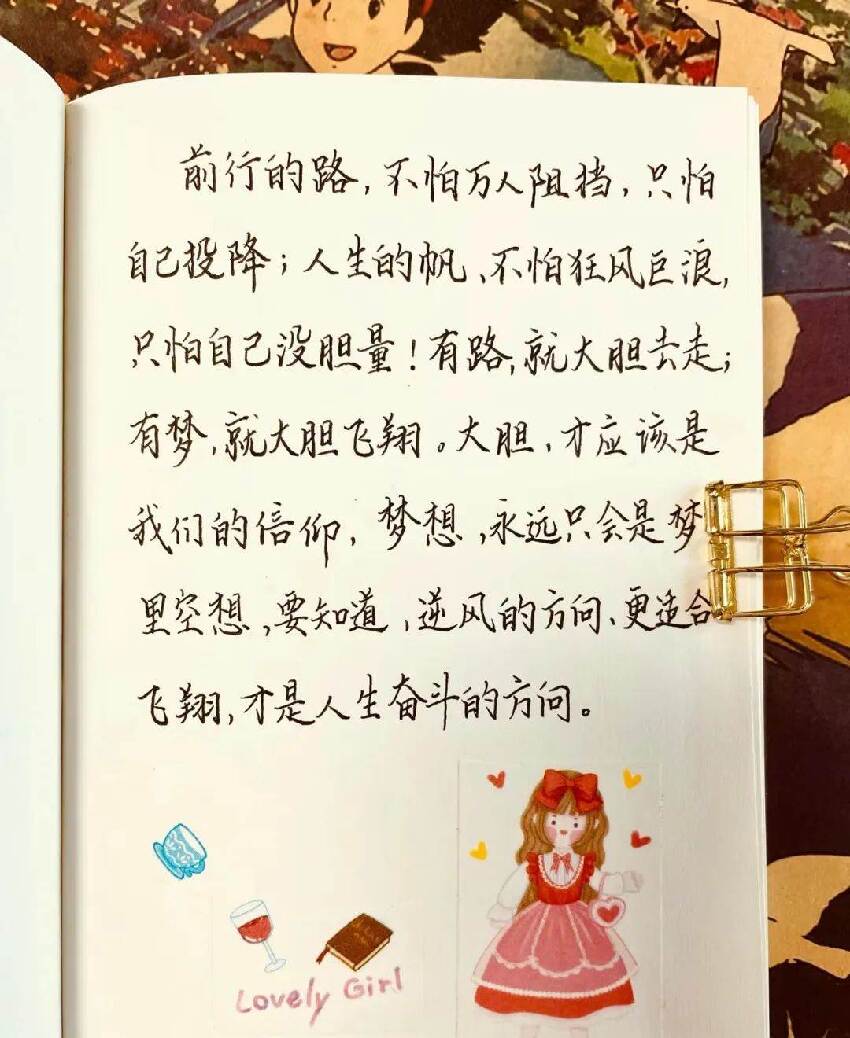 前行的路,不怕万人阻挡,只怕
自己投降;人生的帆、不怕狂风巨浪,
只怕自己没胆量!有路,就大胆去走;
有梦,就大胆飞翔。大胆、才应该是
我们的信仰,梦想,永远只会是梦
里空想,要知道,逆风的方向、更适合
飞翔,才是人生奋斗的方向。
Lovely Girl